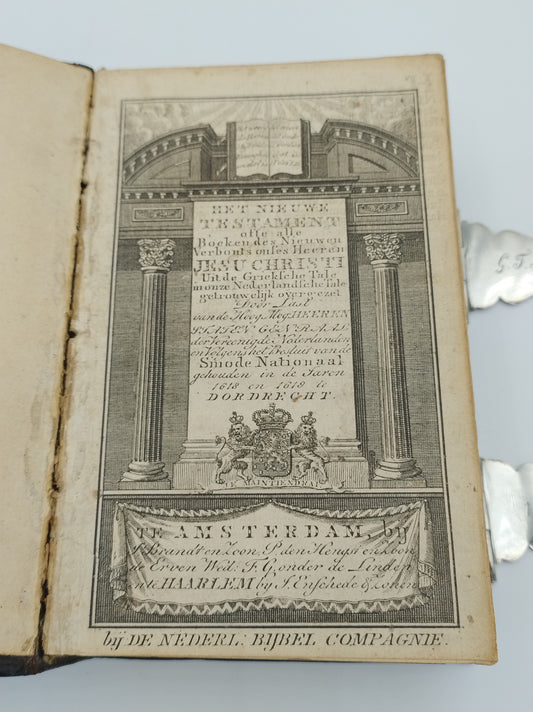 HET NIEUWE
TESTAMENT
ofte alle
Boeken des Nieuwen
Verbonts onses Heeren
JESU CHRISTI
Uit de Grieksche Tale
in onze Nederlandsche Tale
getrouwelijk overgezet
Door Last
van de Hoog Mog: HEEREN
STATEN GENERAAL
der Vereenigde Nederlanden
en Volgens het Besluit van de
Sinode Nationaal
gehouden in de Jaren
1618 en 1619 te
DORDRECHT.
JE MAINTIENDRAI
TE AMSTERDAM, bij
P. Brandt en Zoon, P. den Hengst en Zoon
de Erven Wed: F. G. onder de Linden
en te HAARLEM by J. Enschede & Zonen
bij DE NEDERL: BIJBEL COMPAGNIE.